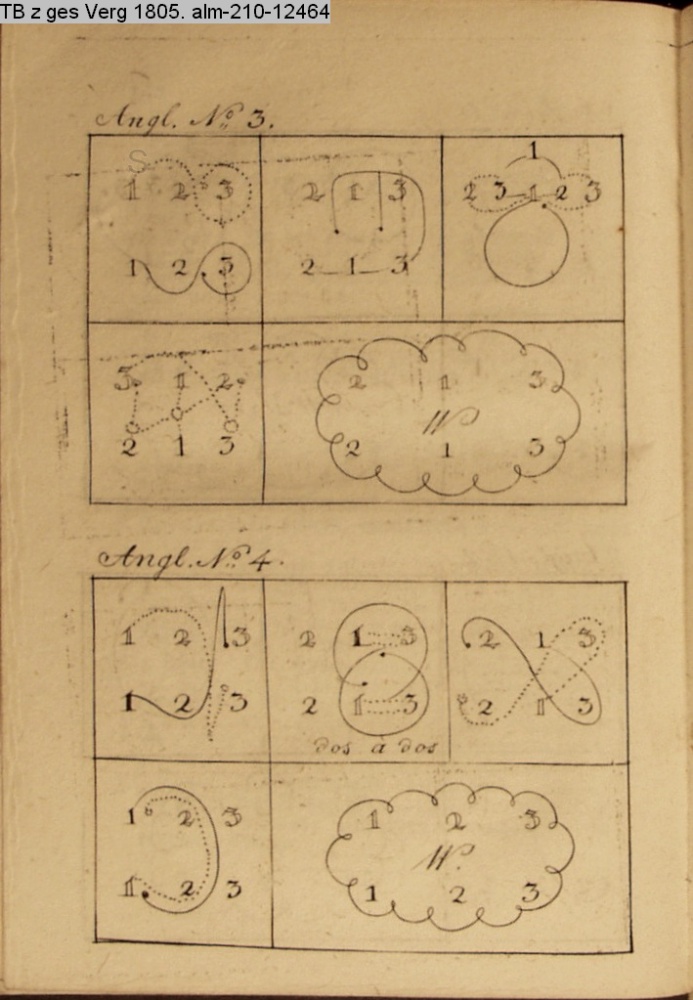 TB z ges Verg 1805. alm-210-12464
Angl. No. 3.
S
1 2 3
1 2 3
2 1 3
2 1 3
1
2 3 1 2 3
3 1 2
2 1 3
2 1 3
W
2 1 3
Angl. No. 4.
1 2 3
1 2 3
2 1 3
2 1 3
dos à dos
2 1 3
2 1 3
1 2 3
1 2 3
1 2 3
W.
1 2 3